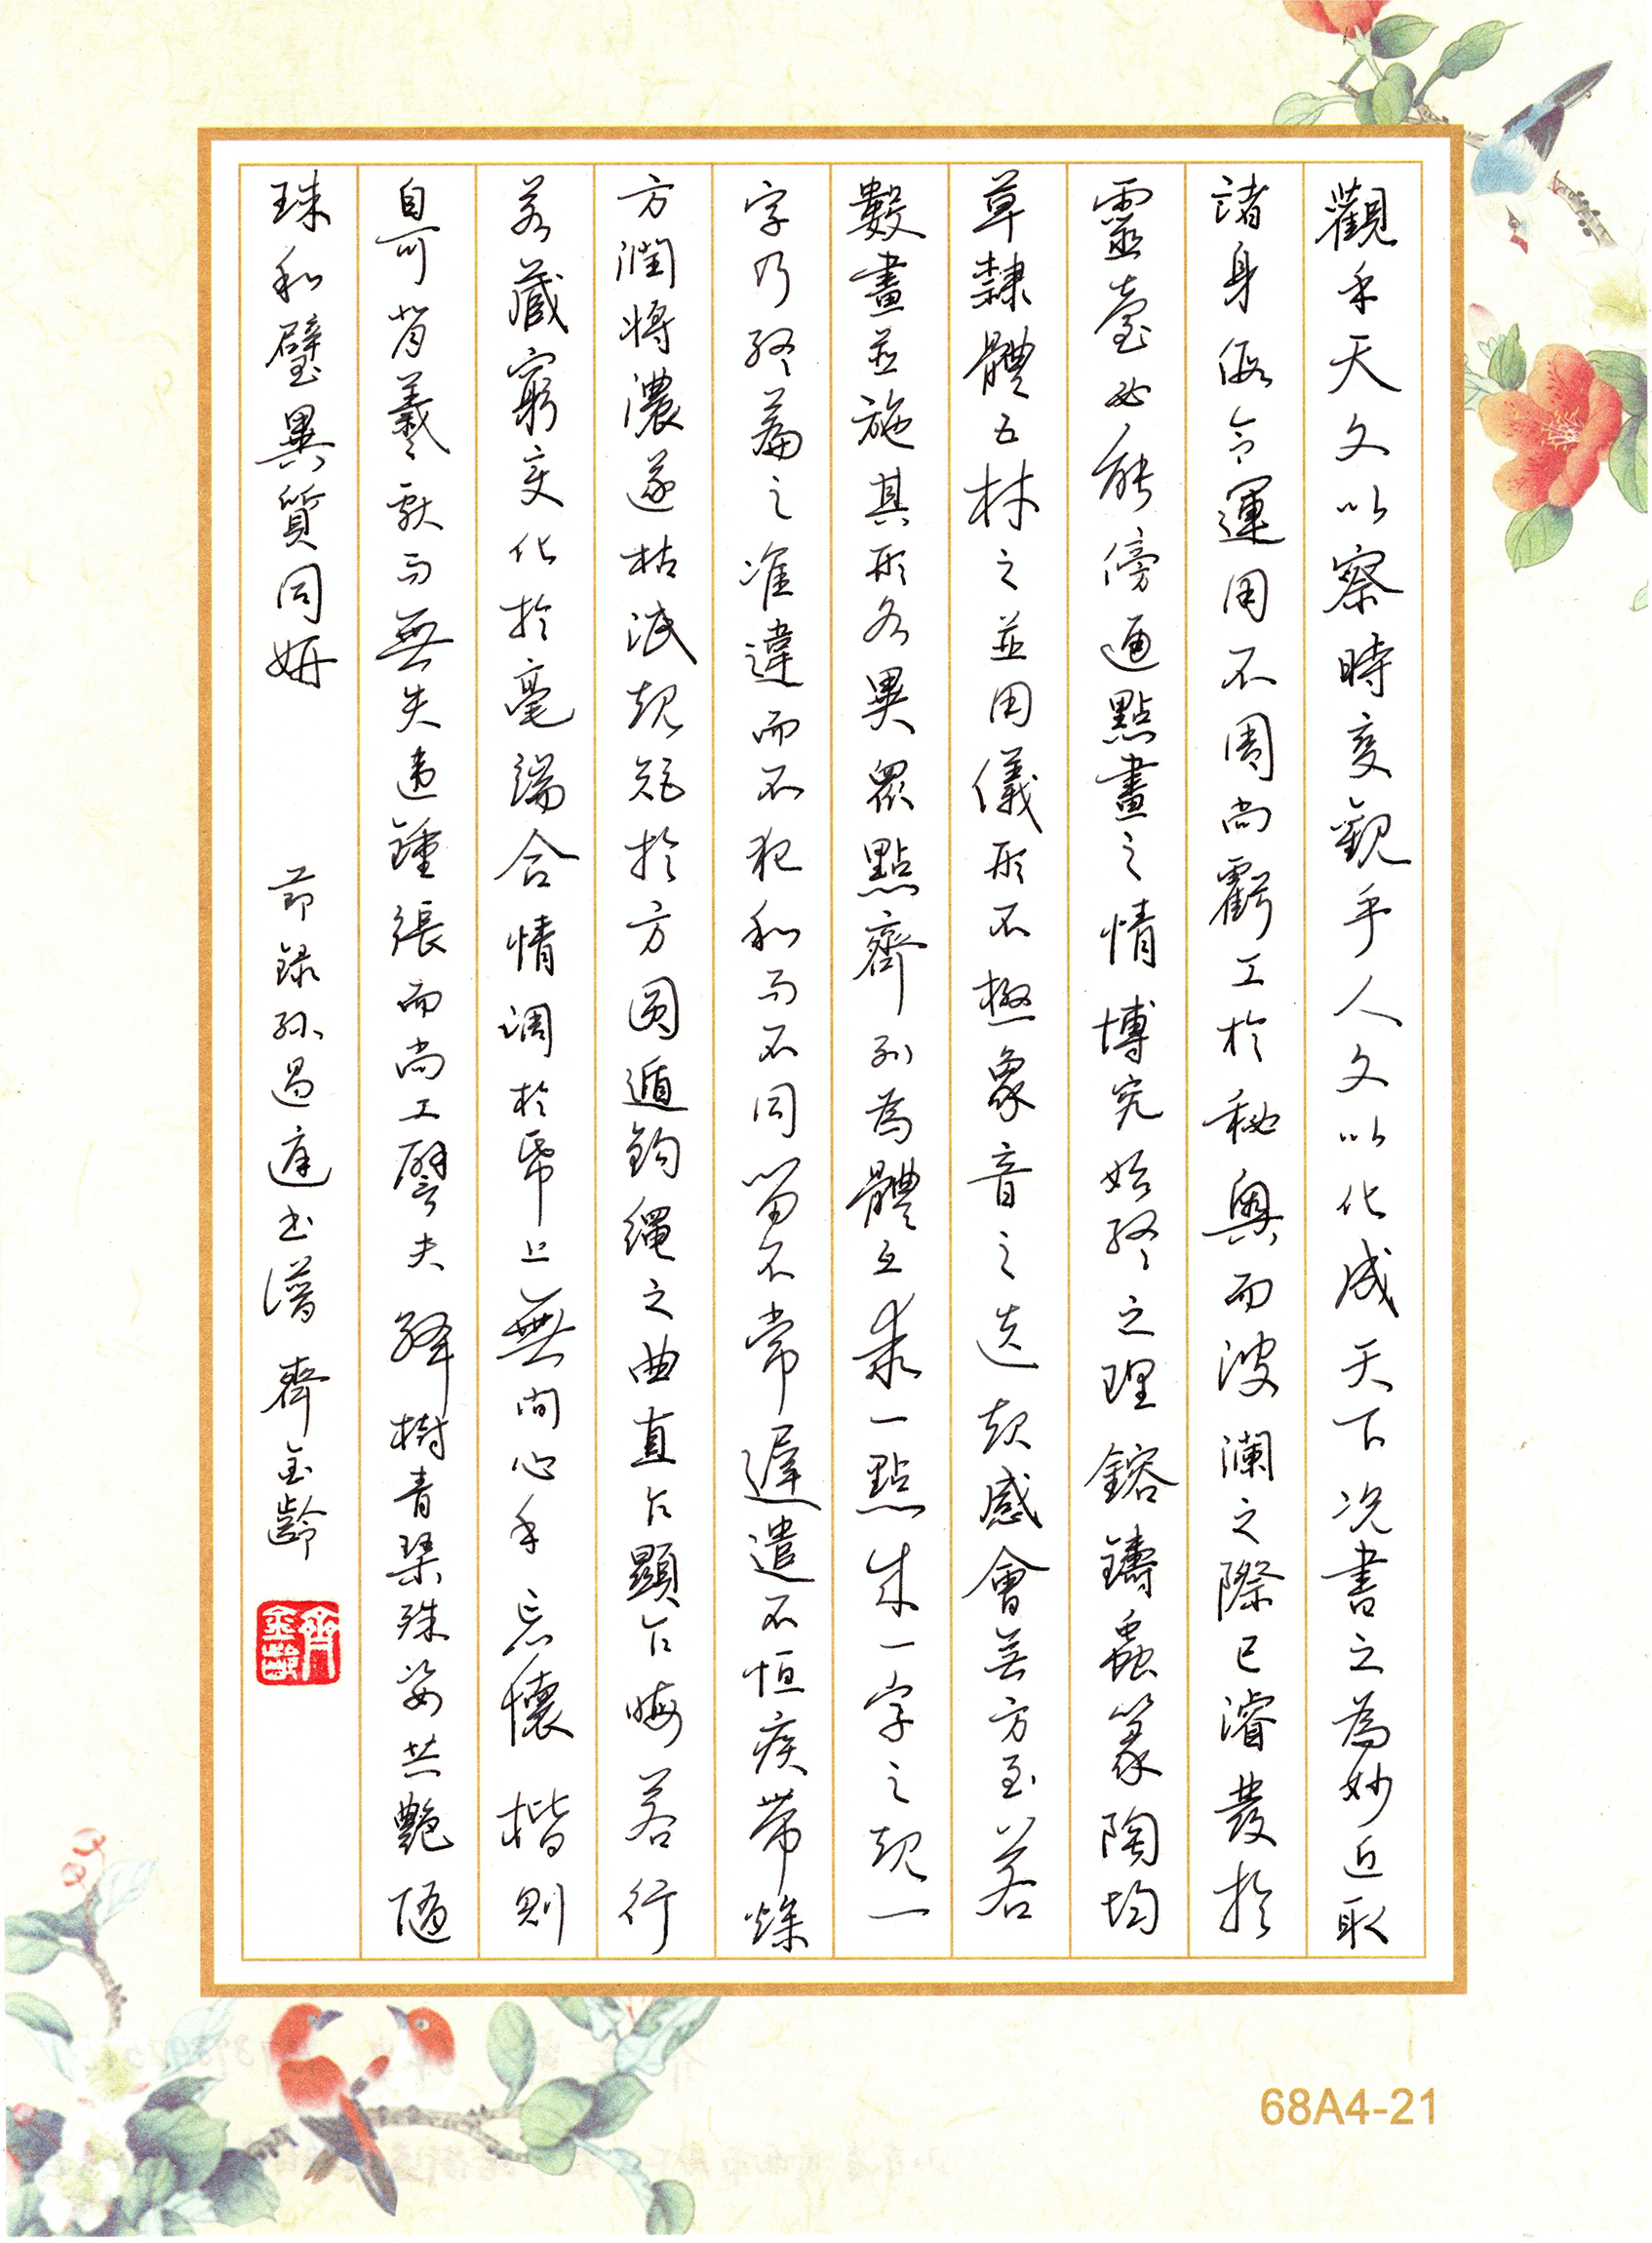 觀乎天文以察時變觀乎人文以化成天下况書之為妙近取
諸身假令運用不周尚虧工於秘奧而波瀾之際已濬發於
靈臺必能傍通點畫之情博究始終之理鎔鑄蟲篆陶均
草隸體五材之並用儀形不極象音之迭起感會無方至若
數畫並施其形各異眾點齊列為體互乖一點成一字之規一
字乃終篇之准違而不犯和而不同留不常遲遣不恒疾帶燥
方潤將濃遂枯泯規矩於方圓遁鉤繩之曲直乍顯乍晦若行
若藏窮变化於毫端合情調於帋上無間心手忘懷楷則
自可背羲獻而無失違鍾張而尚工譬夫絳樹青琴殊姿共艷隨
珠和璧異質同妍
節録孫過庭书譜 齊金齡
齊金齡
68A4-21